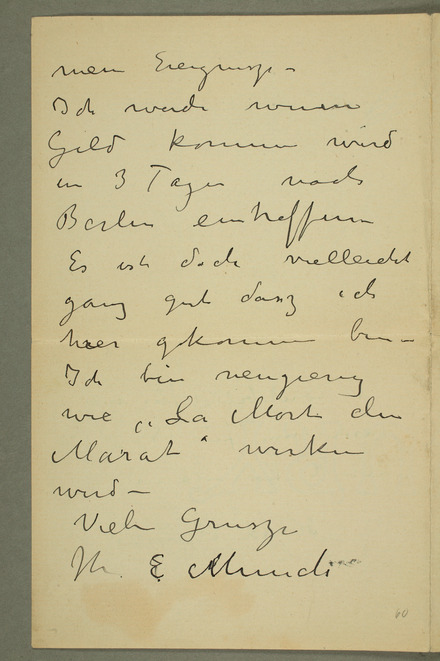 mein Ereignisz –
Ich werde wenn
Geld kommen wird
in 3 Tagen nach
Berlin eintreffen
Es ist doch vielleicht
ganz gut dasz ich
hier gekommen bin –
Ich bin neugierig
wie „La Mort de
Marat“ wirken
wird –
Viele Grusze
Ihr E Munch
60